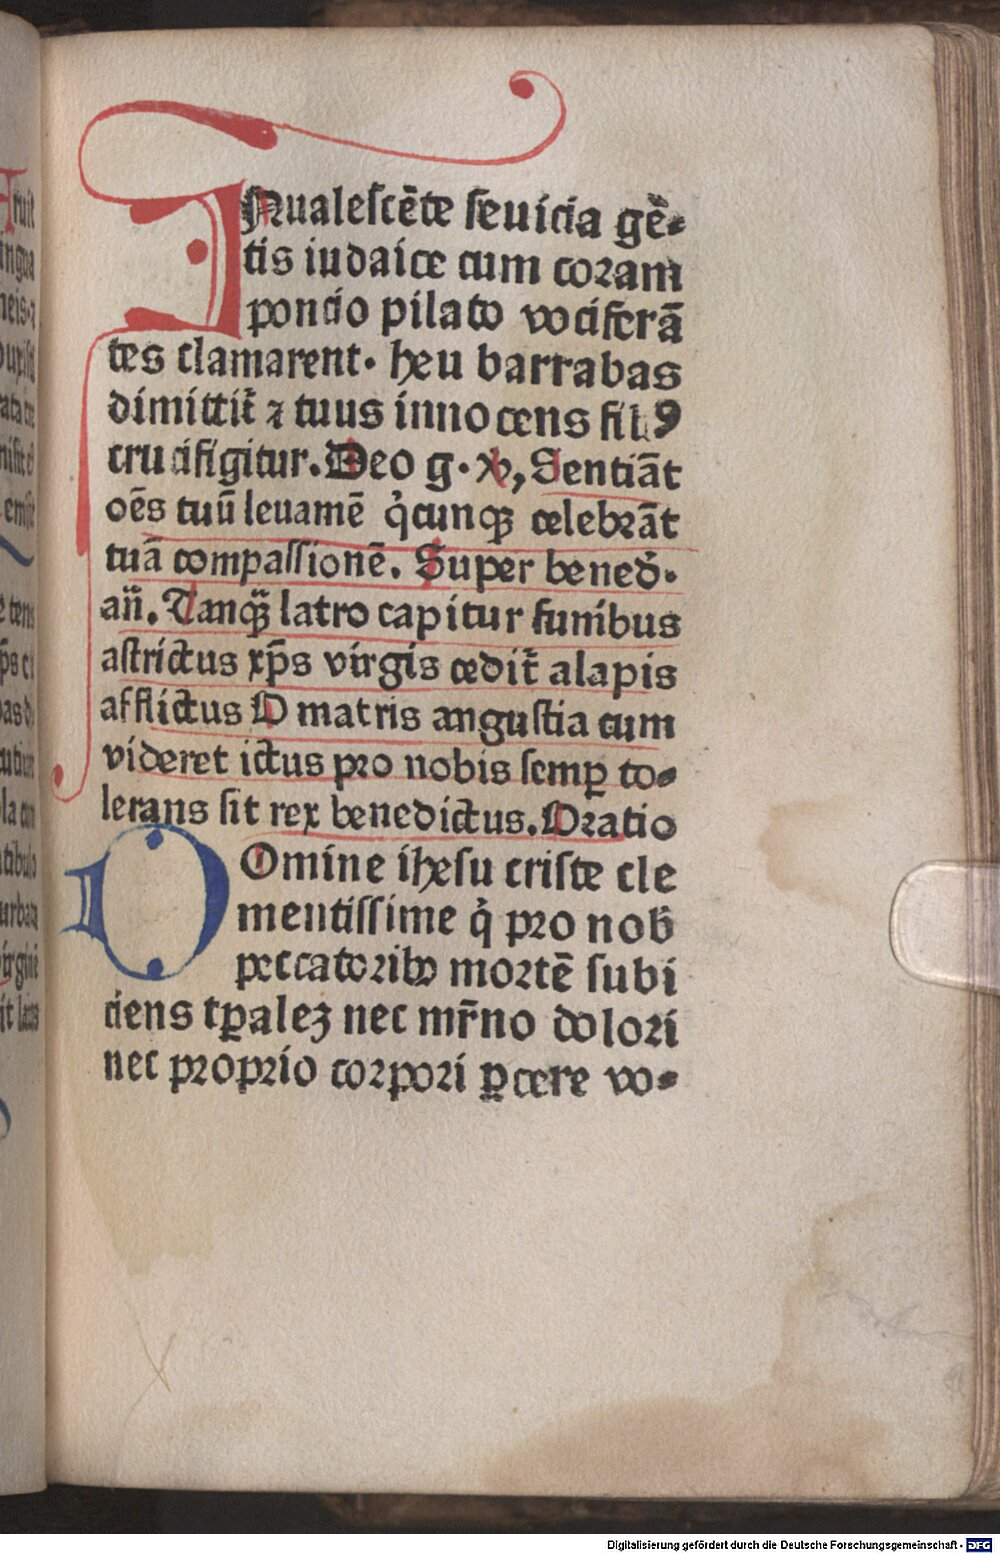 INualescēte seuicia gē⸗
tis iudaice cum coram
poncio pilato vociferā
tes clamarent. heu barrabas
dimittit᷑ ⁊ tuus innocens filꝰ
crucifigitur. Deo g. V, Sentiāt
oēs tuū leuamē q̇cunqꝫ celebrāt
tuā compassionē. Super bened̄.
an̄. Tanqꝫ latro capitur funibus
astrictus xp̄s virgis cedit᷑ alapis
afflictus O matris angustia cum
videret ictus pro nobis semꝑ to⸗
lerans sit rex benedictus. Oratio
DOmine ihesu criste cle
mentissime q̇ pro nob̄
peccatoribꝰ mortē subi
ciens tꝑalez nec mr̄no dolori
nec proprio corpori ꝑcere vo⸗
Digitalisierung gefördert durch die Deutsche Forschungsgemeinschaft - DFG